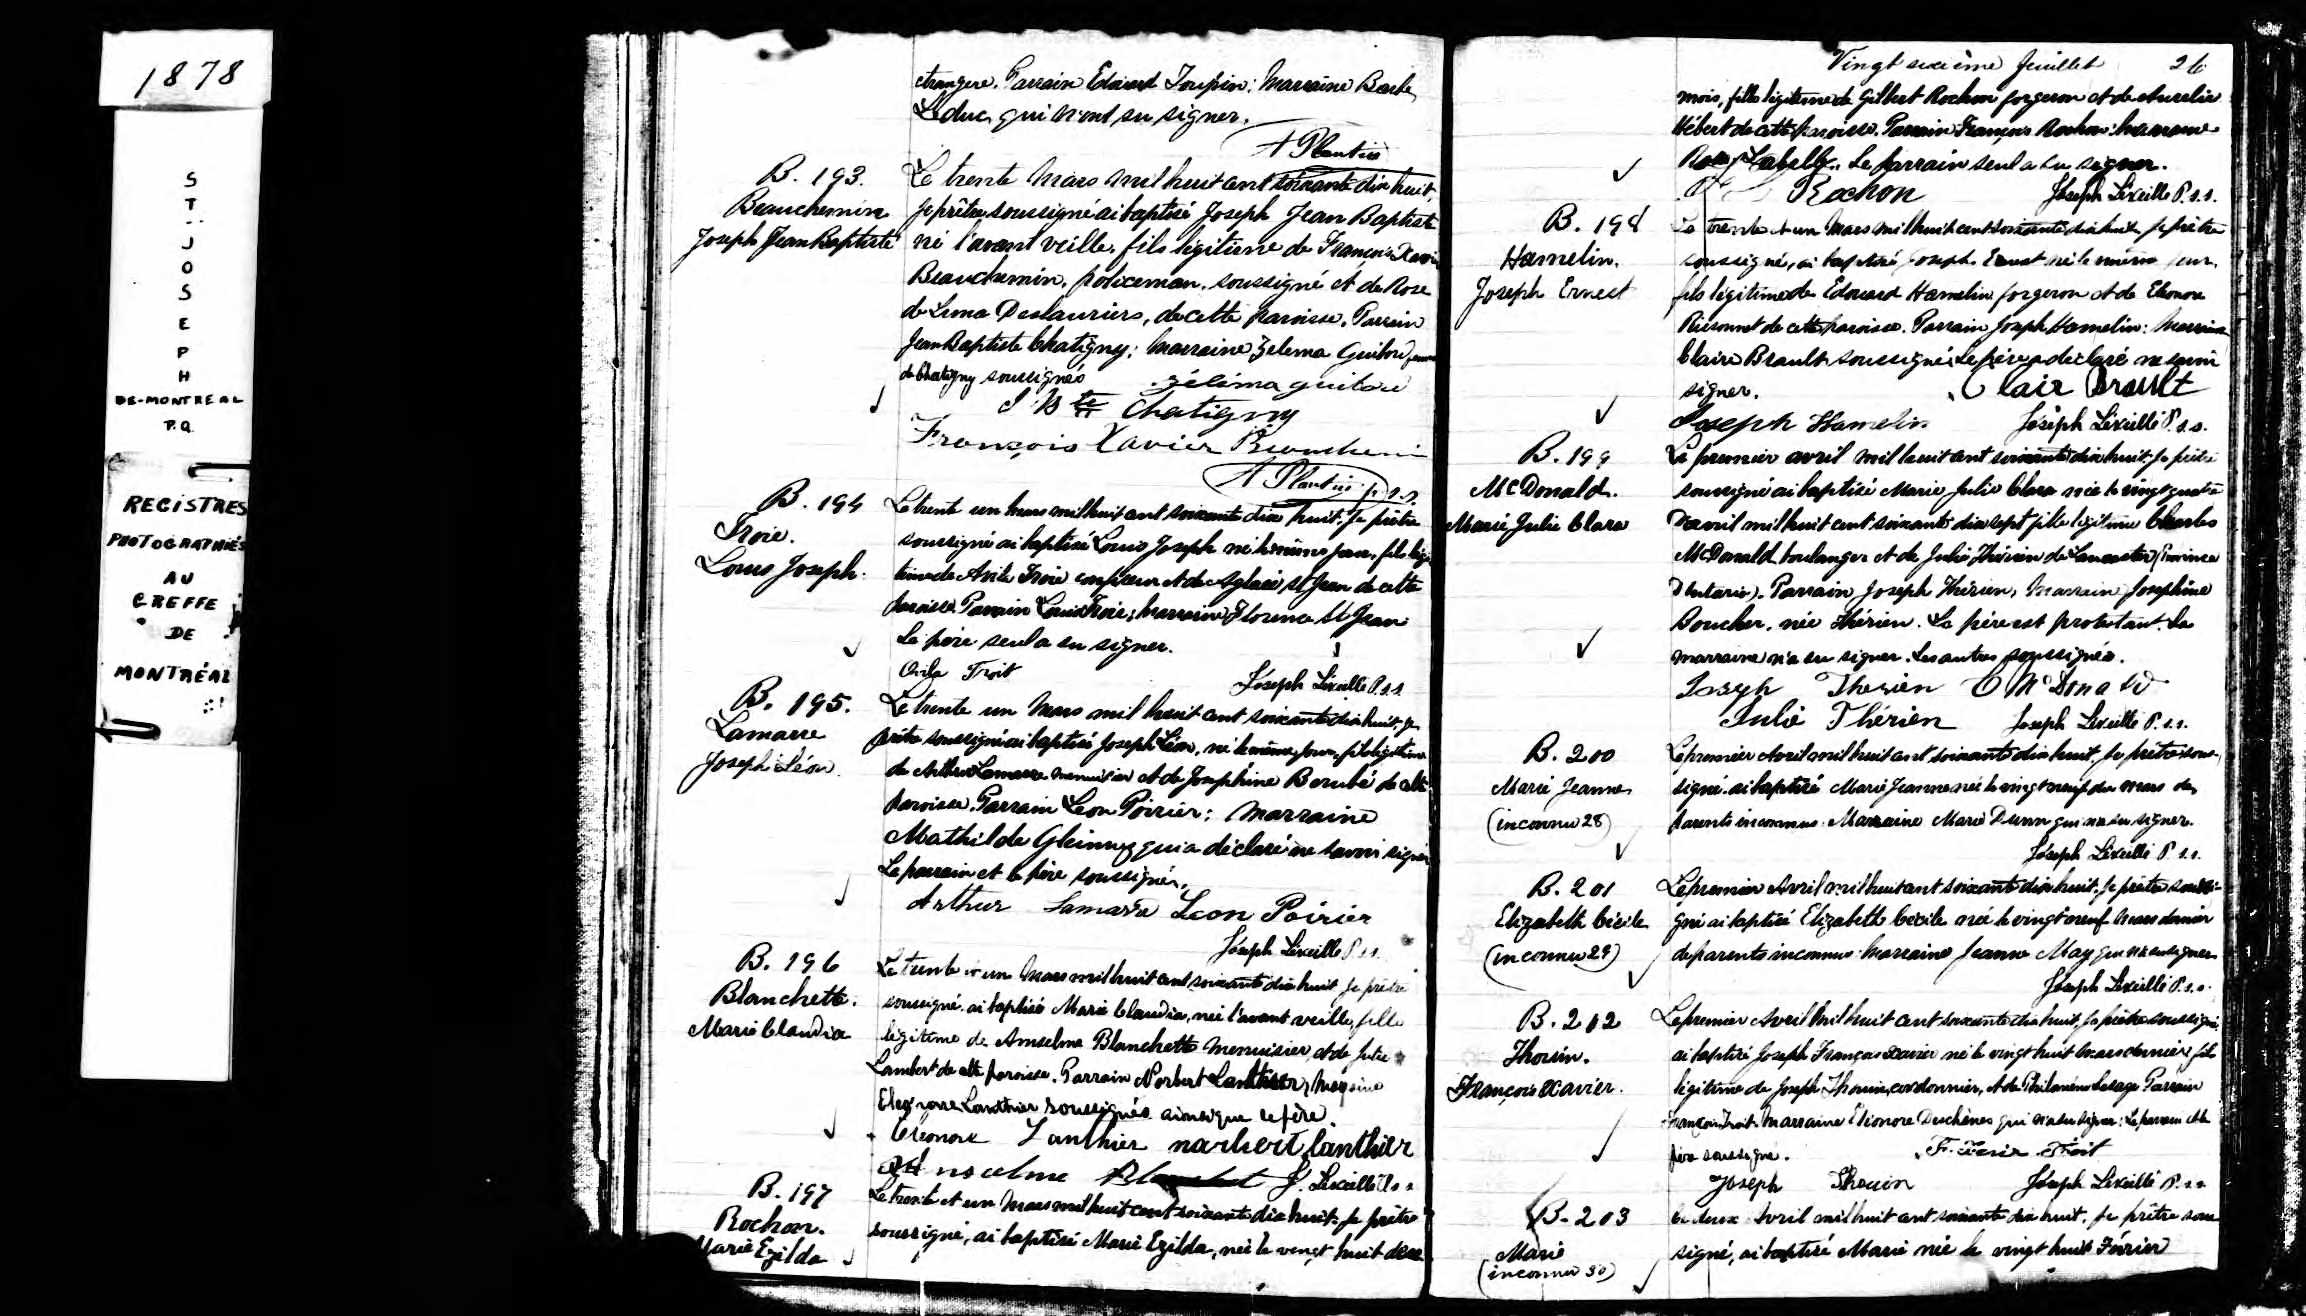 1878
ST-JOSEPH
DE-MONTREAL
P.Q.
REGISTRES
PHOTOGRAPHIÉS
AU
GREFFE
DE
MONTRÉAL
etrangere. Parrain Edouard Toupin: Marraine Barbe
Leduc, qui n'ont su signer.
A Plantin
B. 193.
Beauchemin
Joseph Jean Baptiste
Le trente Mars mil huit cent soixante dix huit,
je prêtre soussigné ai baptisé Joseph Jean Baptiste
né l'avant veille, fils légitime de François Xavier
Beauchemin, policeman, soussigné et de Rose
de Lima Deslauriers, de cette paroisse. Parrain
Jean Baptiste Chatigny; Marraine Zelema Guitard femme
de Chatigny soussignés
zéléma guitard
J Bte Chatigny
François Xavier Beauchemin
A Plantin p.s.s.
B. 194
Troie.
Louis Joseph.
Le trente un mars mil huit cent soixante dix huit, je prêtre
soussigné ai baptisé Louis Joseph né le même jour, fils légi
time de Avila Troie confiseur et de Aglaée St Jean de cette
paroisse. Parrain Louis Troie; marraine Florence St Jean
Le père seul a su signer.
Avila Troit
Joseph Lixeille P.s.s.
B. 195.
Lamarre
Joseph Léon
Le trente un Mars mil huit cent soixante dix huit, je
prêtre soussigné ai baptisé Joseph Léon, né le même jour, fils légitime
de Arthur Lamarre menuisier et de Josephine Berubé de cette
paroisse. Parrain Leon Poirier; Marraine
Mathilde qui a déclaré ne savoir signer
Le parrain et le père soussignés.
Arthur Lamarre Leon Poirier
Joseph Lixeille P.s.s.
B. 196
Blanchette.
Marie Claudia
Le trente et un Mars mil huit cent soixante dix huit je prêtre
soussigné ai baptisé Marie Claudia, née l'avant veille, fille
légitime de Anselme Blanchette Menuisier et de Julie
Lambert de cette paroisse. Parrain Norbert Lanthier; Marraine
Eleonore Lanthier soussignés ainsi que le père.
Eleonore Lanthier narbert lanthier
Anselme Blanchet J. Lixeille P.s.s
B. 197
Rochon.
Marie Ezilda
Le trente et un Mars mil huit cent soixante dix huit, je prêtre
soussigné, ai baptisé Marie Ezilda, née le vingt huit de ce
Vingt sixième feuillet 26
mois, fille légitime de Gilbert Rochon forgeron et de Aurelie
Hébert de cette paroisse. Parrain François Rochon: Marraine
Rose Labelle. Le parrain seul a su signer.
Rochon
Joseph Lixeille P.s.s.
B. 198
Hamelin.
Joseph Ernest
Le trente et un Mars mil huit cent soixante dix huit, je prêtre
soussigné, ai baptisé Joseph Ernest né le même jour,
fils légitime de Edouard Hamelin forgeron et de Eleonore
de cette paroisse. Parrain Joseph Hamelin: Marraine
Claire Brault soussignés. Le père a déclaré ne savoir
signer.
Clair Brault
Joseph Hamelin
Joseph Lixeille P.s.s.
B. 199
McDonald.
Marie Julie Clara
Le premier avril mil huit cent soixante dix huit, je prêtre
soussigné ai baptisé Marie Julie Clara née le vingt quatre
d'avril mil huit cent soixante dix sept fille légitime Charles
McDonald boulanger et de Julie Thérien de Lancaster (Province
d'Ontario). Parrain Joseph Thérien, Marraine Josephine
Boucher, née Thérien. Le père est protestant. La
marraine n'a su signer. Les autres soussignés.
Joseph Therien C McDonald
Julie Thérien
Joseph Lixeille P.s.s.
B. 200
Marie Jeanne
(inconnu 28)
Le premier Avril mil huit cent soixante dix huit, je prêtre sous-
signé ai baptisé Marie Jeanne née le vingt neuf de mars de
parents inconnus. Marraine Marie Dunn qui n'a su signer.
Joseph Lixeille P.s.s.
B. 201
Elizabeth Cécile
(inconnu 29)
Le premier Avril mil huit cent soixante dix huit, je prêtre soussi-
gné ai baptisé Elizabeth Cécile née le vingt neuf Mars dernier
de parents inconnus Marraine Jeanne May qui n'a su signer
Joseph Lixeille P.s.s.
B. 202
Thouin.
François Xavier.
Le premier Avril mil huit cent soixante dix huit, je prêtre soussigné,
ai baptisé Joseph François Xavier né le vingt huit Mars dernier, fils
légitime de Joseph Thouin, cordonnier, et de Philomène Lesage Parrain
François Troit. Marraine Eléonore Deschênes qui n'a su signer: Le parrain et le
père soussigné.
F. Xavier Troit
Joseph Thouin
Joseph Lixeille P.s.s
B. 203
Marie
(inconnu 30)
Le deux Avril mil huit cent soixante dix huit, je prêtre sous-
signé, ai baptisé Marie née le vingt huit Février